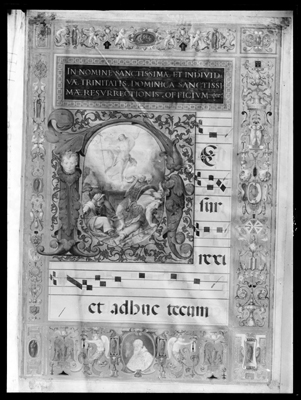 IN NOMINE SANCTISSIMA ET INDIVID
VA TRINITATIS DOMINICA SANCTISSI
MÆ RESVRRECTIONIS OFFICIVM
R
E
sur
rexi
et adhuc tecum